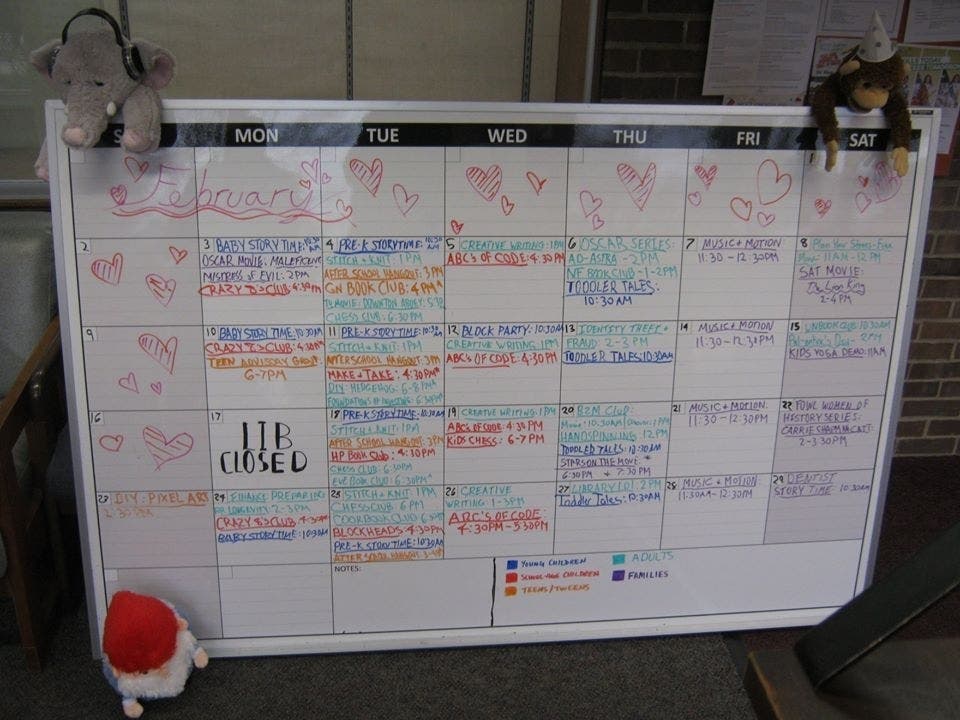 MON TUE WED THU FRI SAT
February
2
3 BABY STORY TIME:
OSCAR MOVIE: MALEFICENT
MISTRESS OF EVIL: 2PM
CRAZY 8'S CLUB: 4:30PM
4 PRE-K STORYTIME:
STITCH + KNIT: 1PM
AFTER SCHOOL HANGOUT: 3PM
GN BOOK CLUB: 4PM
MOVIE: DOWNTON ABBEY:
CHESS CLUB: 6:30PM
5 CREATIVE WRITING: 1PM
ABC'S OF CODE: 4:30PM
6 OSCAR SERIES:
AD-ASTRA - 2PM
NF BOOK CLUB - 1-2PM
TODDLER TALES:
10:30AM
7 MUSIC + MOTION
11:30 - 12:30PM
8
11AM - 12PM
SAT MOVIE:
The Lion King
2-4PM
9
10 BABY STORY TIME: 10:30AM
CRAZY 8'S CLUB:
TEEN ADVISORY GROUP:
6-7PM
11 PRE-K STORYTIME:
STITCH + KNIT: 1PM
AFTERSCHOOL HANGOUT: 3PM
MAKE + TAKE: 4:30PM
DIY: HEDGEHOG: 6-8PM
6:30PM
12 BLOCK PARTY: 10:30AM
CREATIVE WRITING 1PM
ABC'S OF CODE: 4:30PM
13 IDENTITY THEFT +
FRAUD: 2-3PM
TODDLER TALES: 10:30AM
14 MUSIC + MOTION
11:30 - 12:30PM
15 UNBOOK CLUB: 10:30AM
KIDS YOGA DEMO: 11AM
16
17
LIB
CLOSED
18 PRE-K STORYTIME: 10:30AM
STITCH + KNIT: 1PM
AFTER SCHOOL HANGOUT: 3PM
HP BOOK CLUB: 4:30PM
CHESS CLUB: 6:30PM
EVE BOOK CLUB: 6:30PM
19 CREATIVE WRITING: 1PM
ABC'S OF CODE: 4:30PM
KIDS CHESS: 6-7PM
20 B2M CLUB:
HANDSPINNING: 12PM
TODDLER TALES: 10:30AM
STARS ON THE MOVE:
6:30PM + 7:30PM
21 MUSIC + MOTION:
11:30 - 12:30PM
22 FOWL WOMEN OF
HISTORY SERIES:
CARRIE
2-3:30PM
23 DIY: PIXEL ART
2:30PM
24 FINANCE PREPARING
FOR LONGEVITY 2-3PM
CRAZY 8'S CLUB: 4:30PM
BABY STORY TIME: 10:30AM
25 STITCH + KNIT: 1PM
CHESS CLUB: 6PM
COOKBOOK CLUB:
BLOCKHEADS: 4:30PM
PRE-K STORY TIME: 10:30AM
AFTER SCHOOL HANGOUT:
26 CREATIVE
WRITING: 1-3PM
ABC'S OF CODE:
4:30PM - 5:30PM
27 LIBRARY 2PM
Toddler Tales: 10:30AM
28 MUSIC + MOTION:
11:30AM - 12:30PM
29 DENTIST
STORY TIME 10:30AM
NOTES:
YOUNG CHILDREN
SCHOOL-AGE CHILDREN
TEENS/TWEENS
ADULTS
FAMILIES